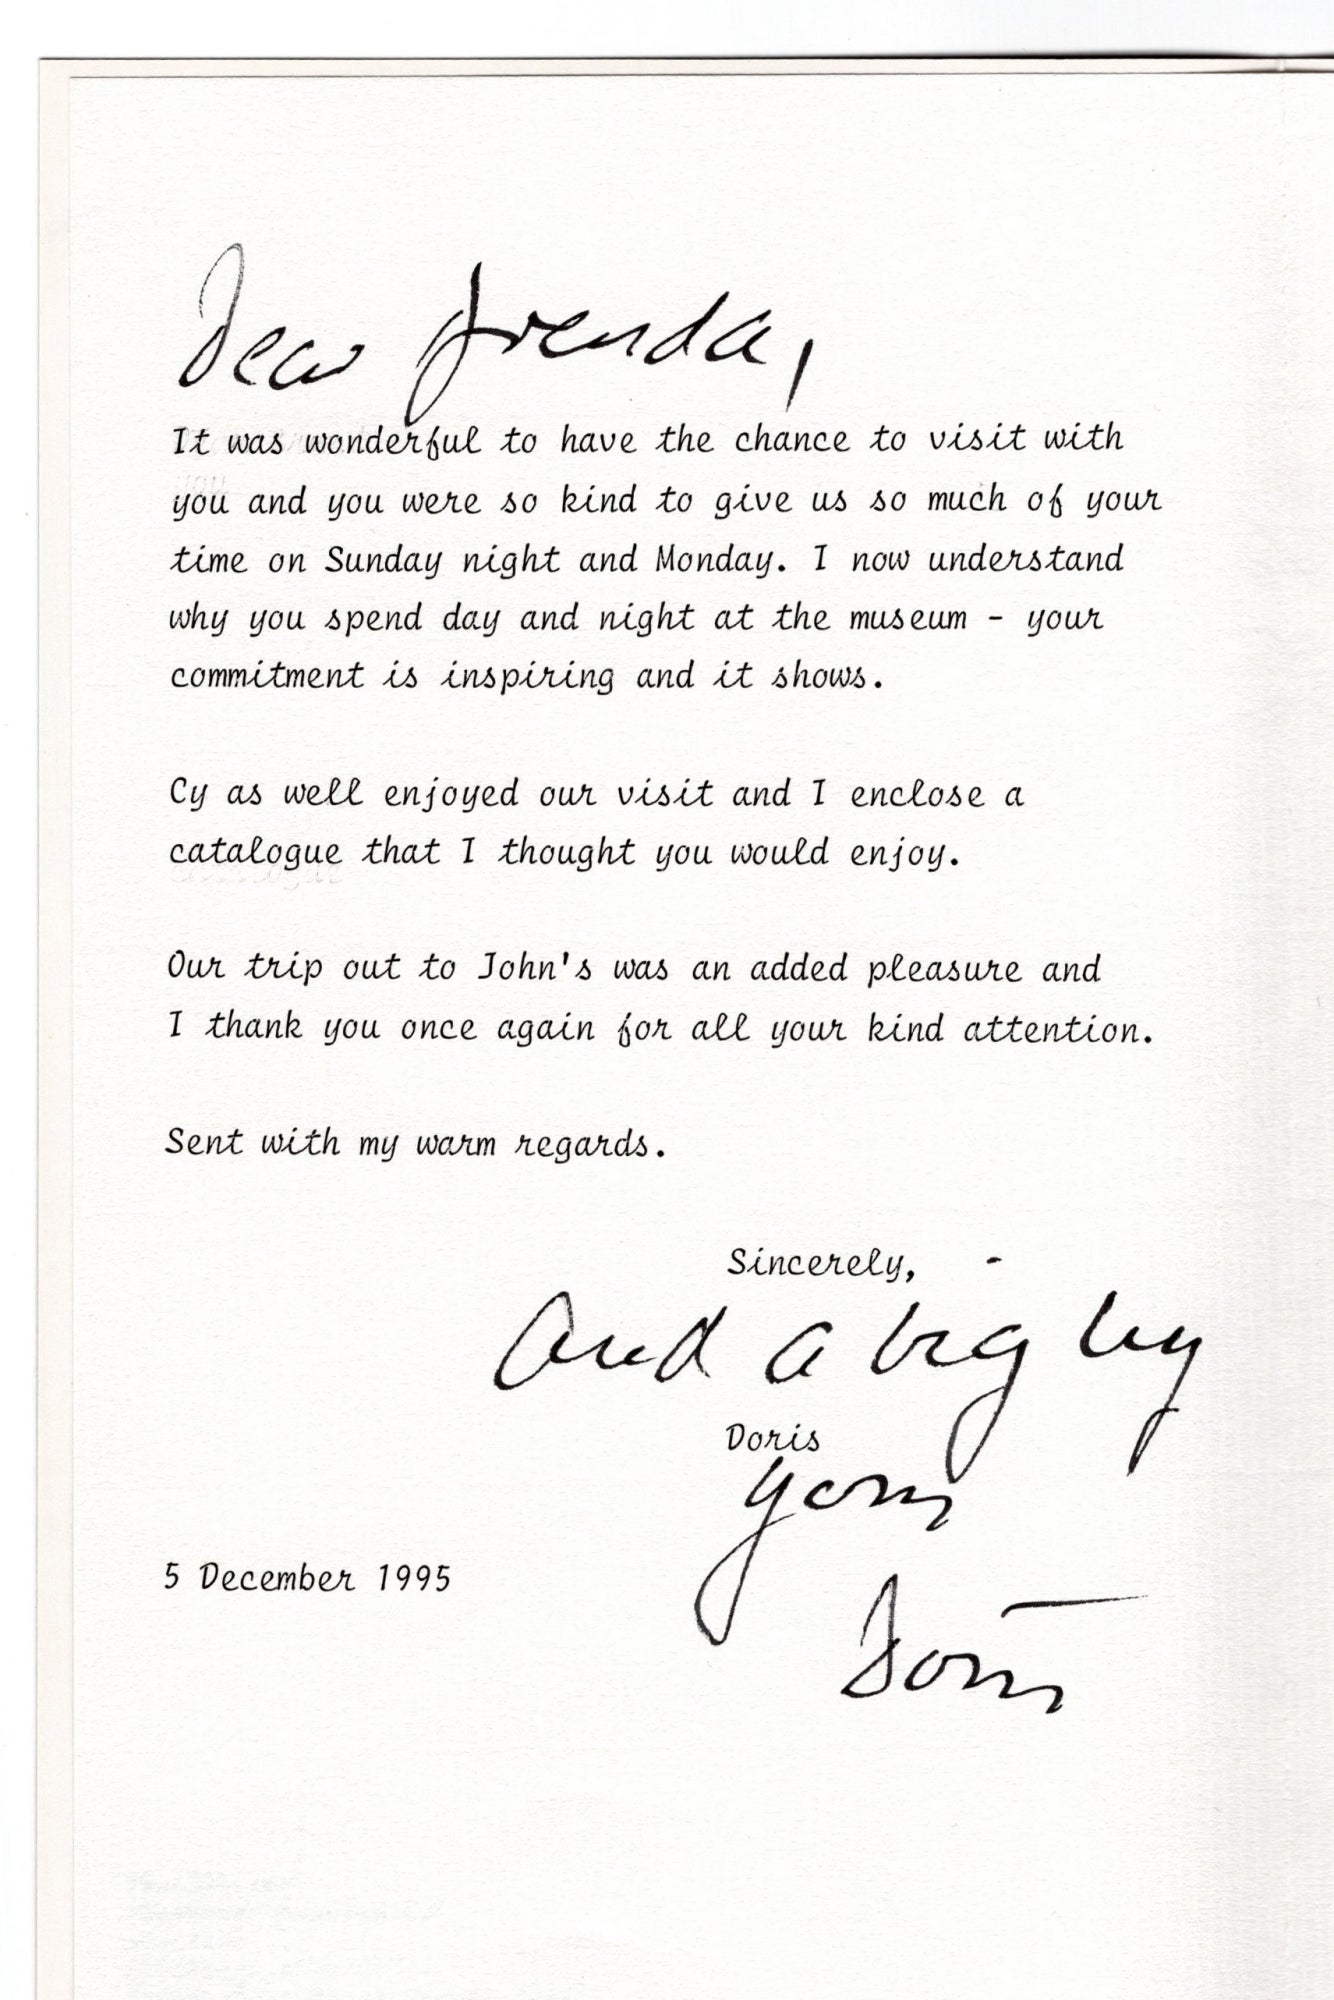 Dear Brenda,
It was wonderful to have the chance to visit with
you and you were so kind to give us so much of your
time on Sunday night and Monday. I now understand
why you spend day and night at the museum - your
commitment is inspiring and it shows.
Cy as well enjoyed our visit and I enclose a
catalogue that I thought you would enjoy.
Our trip out to John's was an added pleasure and
I thank you once again for all your kind attention.
Sent with my warm regards.
Sincerely,
And a big
Doris
5 December 1995
Doris